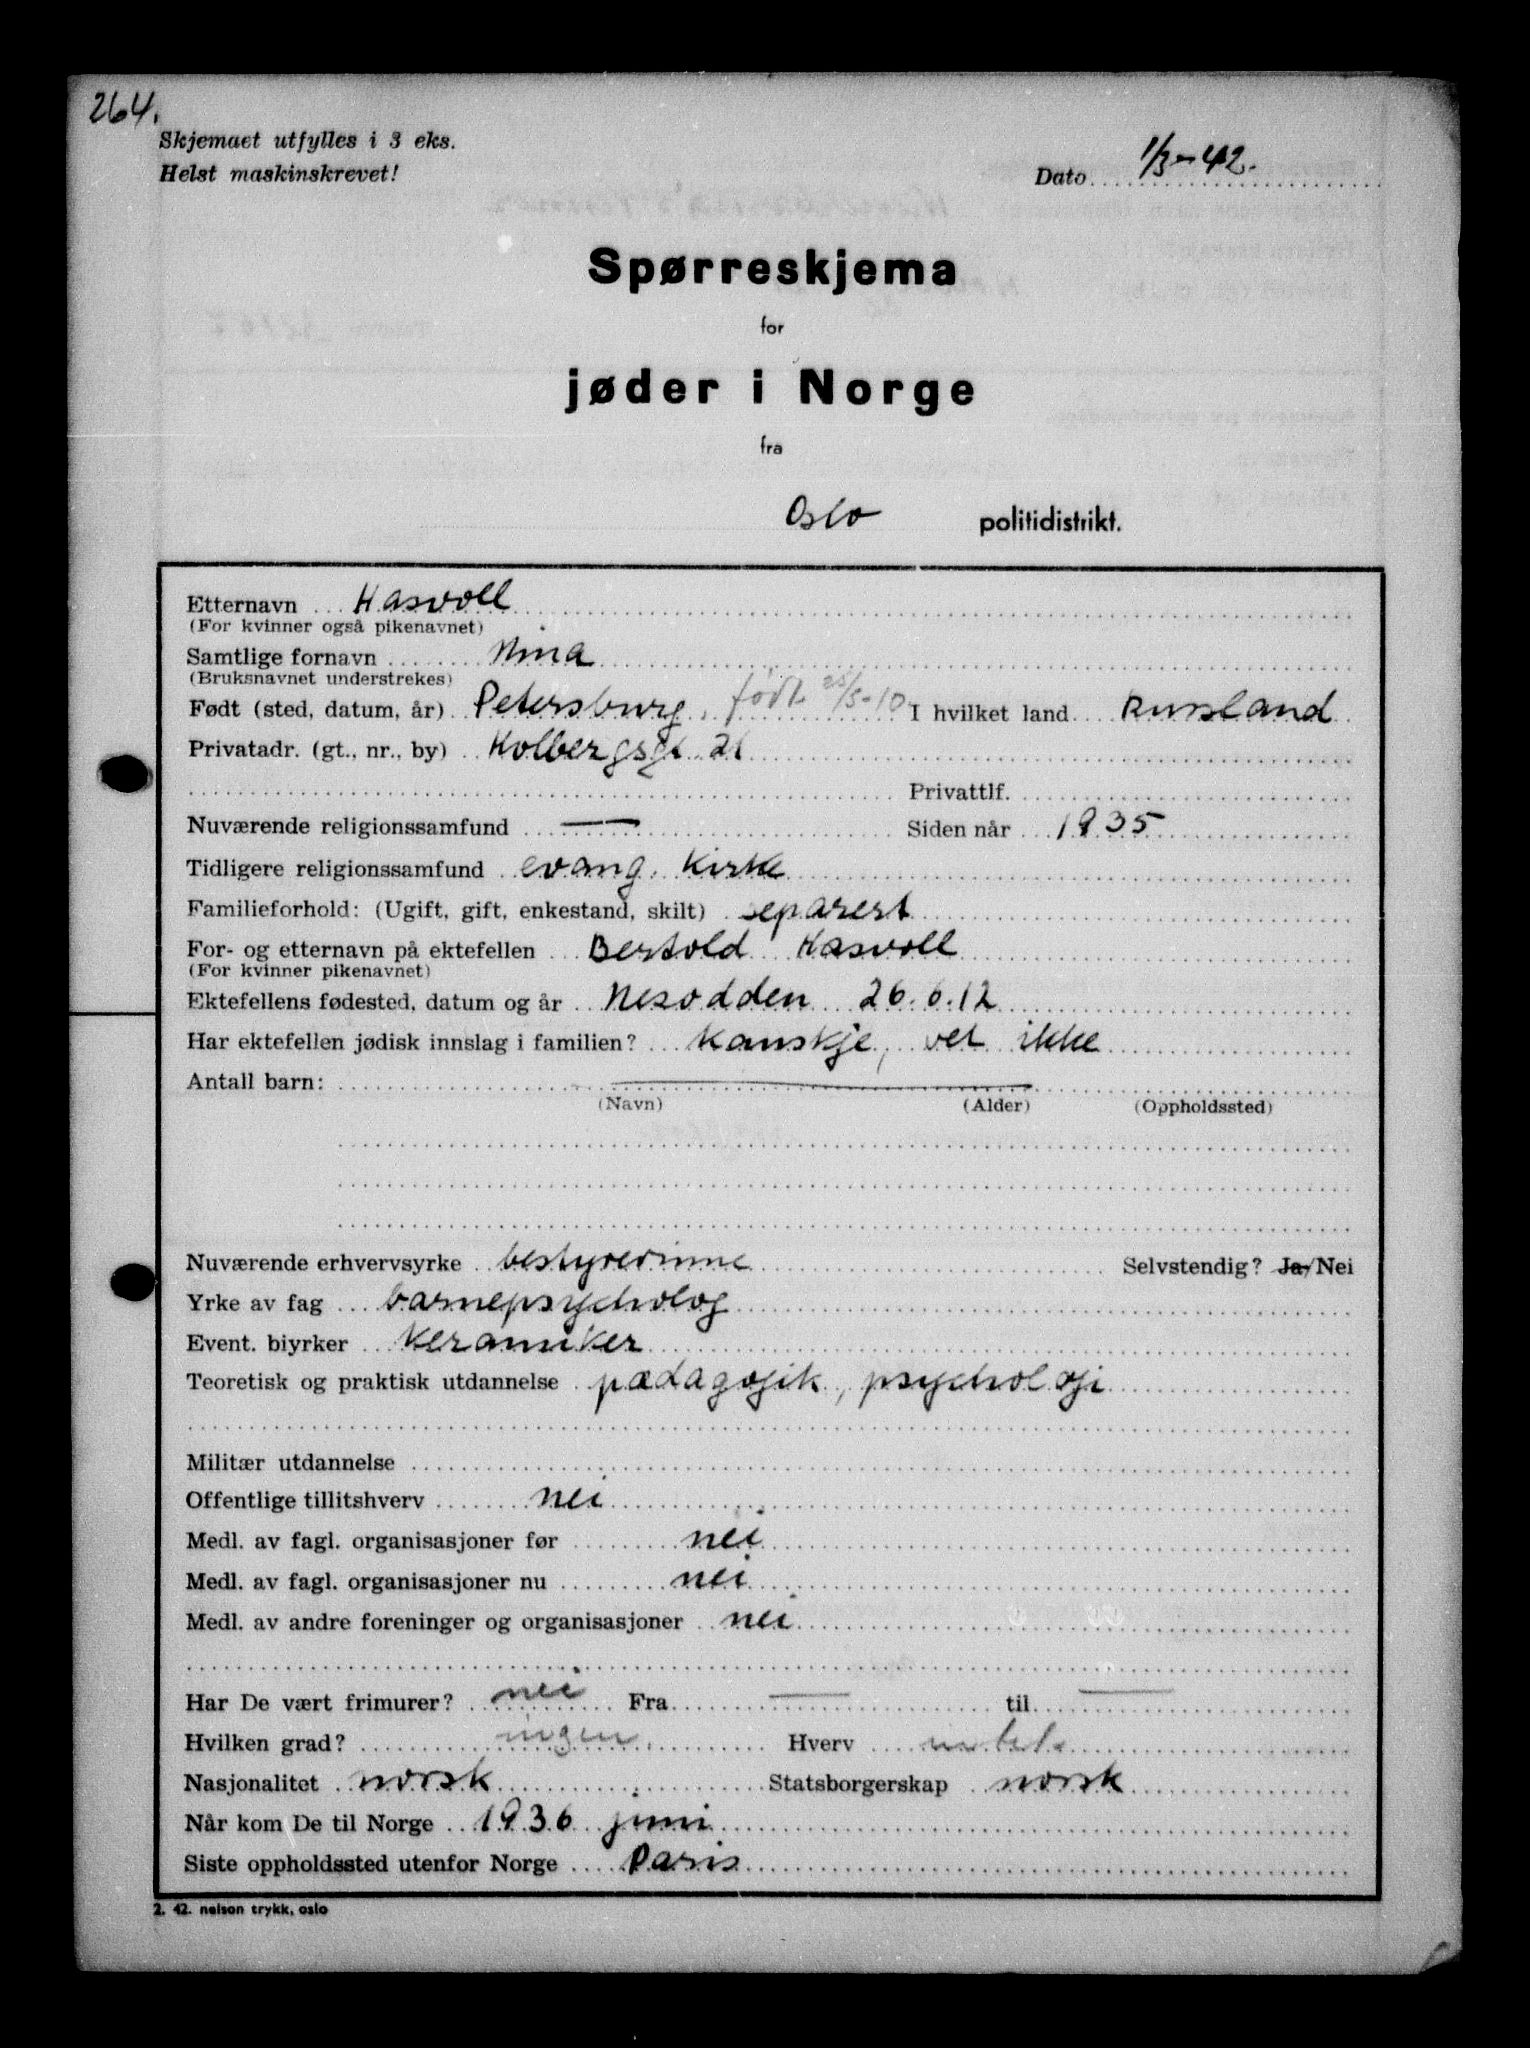 264.
Skjemaet utfylles i 3 eks.
Helst maskinskrevet!
Dato 1/3-42.
Spørreskjema
for
jøder i Norge
fra
Oslo politidistrikt.
Etternavn Hasvoll
(For kvinner også pikenavnet)
Samtlige fornavn Nina
(Bruksnavnet understrekes)
Født (sted, datum, år) Petersburg, født 25/5-10 I hvilket land Russland
Privatadr. (gt., nr., by) Kolbergsgt 21
Privattlf.
Nuværende religionssamfund — Siden når 1935
Tidligere religionssamfund evang. Kirke
Familieforhold: (Ugift, gift, enkestand, skilt) separert
For- og etternavn på ektefellen Bertold Hasvoll
(For kvinner pikenavnet)
Ektefellens fødested, datum og år Nesodden 26.6.12
Har ektefellen jødisk innslag i familien? kanskje, vet ikke
Antall barn: —
(Navn) (Alder) (Oppholdssted)
Nuværende erhvervsyrke bestyrerinne Selvstendig? Ja/Nei
Yrke av fag barnepsycholog
Event. biyrker keramiker
Teoretisk og praktisk utdannelse pædagogik, psychologi
Militær utdannelse
Offentlige tillitshverv nei
Medl. av fagl. organisasjoner før nei
Medl. av fagl. organisasjoner nu nei
Medl. av andre foreninger og organisasjoner nei
Har De vært frimurer? nei Fra — til —
Hvilken grad? ingen Hverv
Nasjonalitet norsk Statsborgerskap norsk
Når kom De til Norge 1936 juni
Siste oppholdssted utenfor Norge Paris
2. 42. nelson trykk, oslo